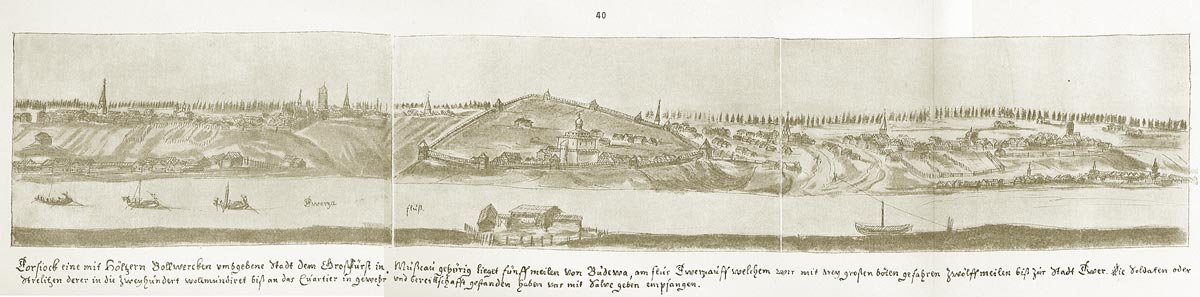 40
Twerza
fluß.
Torsiock eine mit Höltzern Bollwercken umbgebene Stadt dem Großfürst in Mußcau gehörig lieget fünff meilen von Budewa, am fluß Twerza auff welchem wir mit drey großen böten gefahren Zwölff meilen biß zur Stadt Twer. Die Soldaten oder
Strelitzen derer in die Zweyhundert wollmundiret biß an das Quartier in gewehr und bereitschafft gestanden haben uns mit Salve geben empfangen.